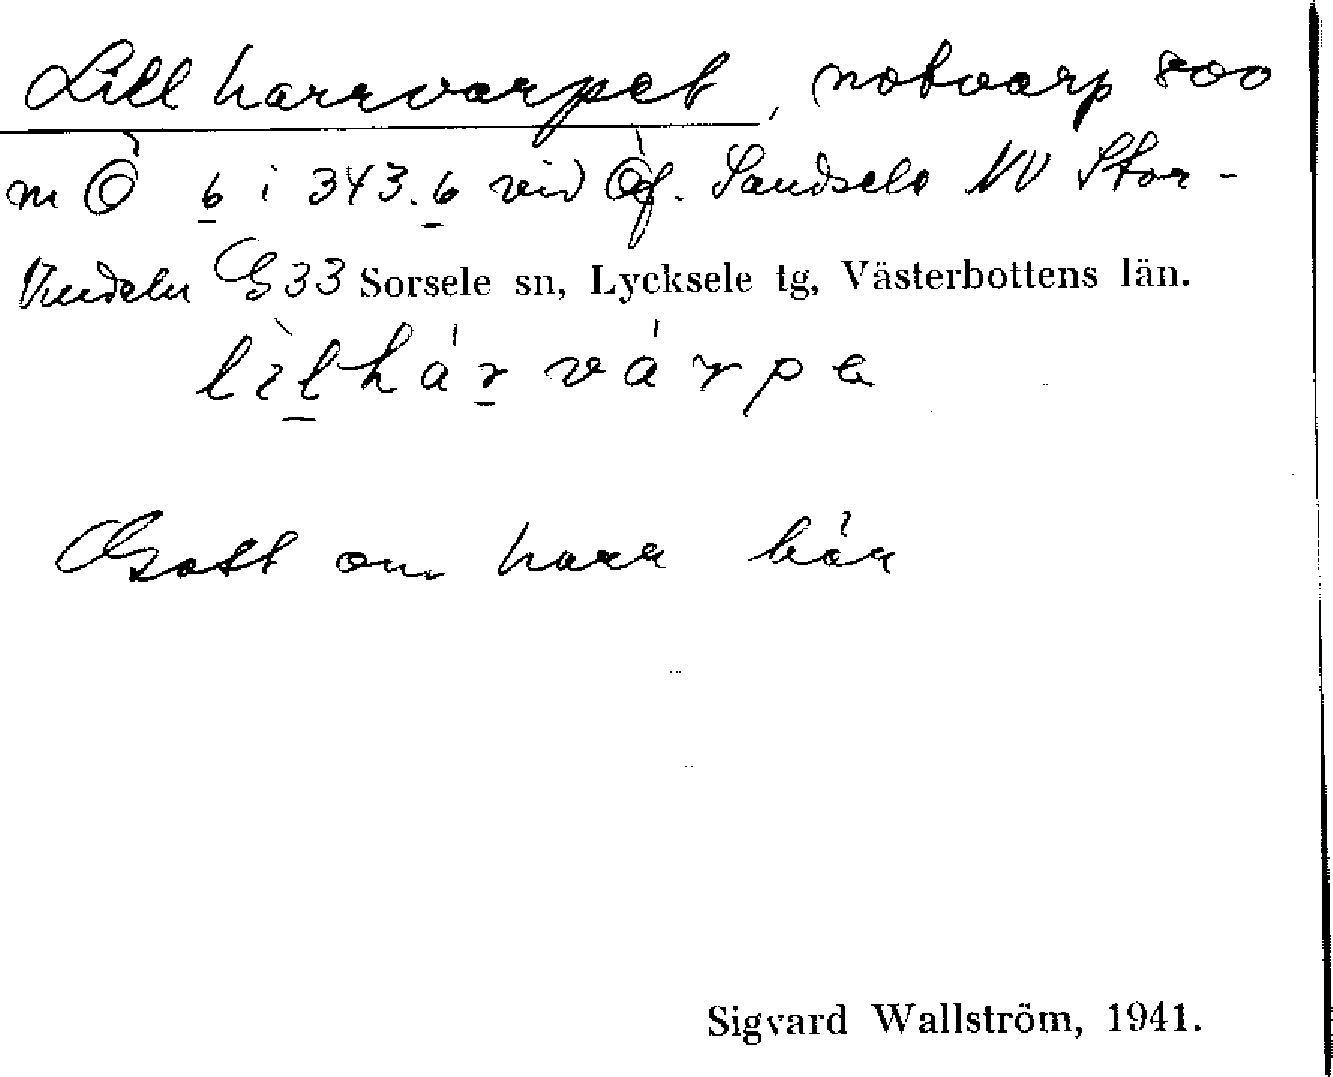 Lillharrvarpet, notvarp 800
m Ö 6 i 343.6 vid Öf. Sandsele NV Stor-
Vindeln G33 Sorsele sn, Lycksele tg, Västerbottens län.
lìlhárvárpa
Gott om harr här
Sigvard Wallström, 1941.